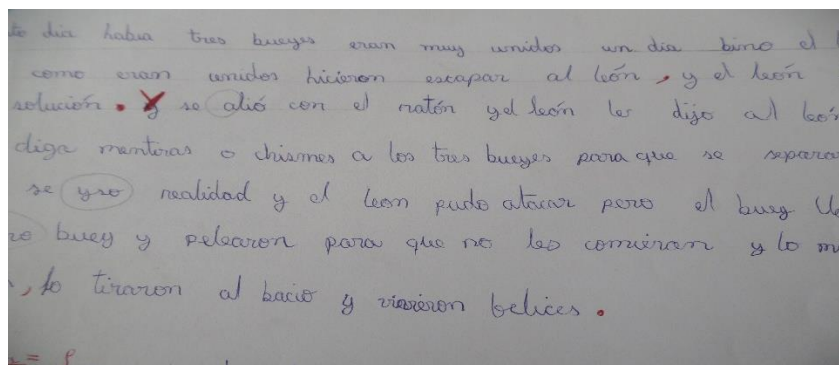 dia habia tres bueyes eran muy unidos un dia bino el
como eran unidos hicieron escapar al león, y el león
solución. Y se alió con el ratón y el león le dijo al león
diga mentiras o chismes a los tres bueyes para que se separa
se yso realidad y el leon pudo atacar pero el buey
buey y pelearon para que no los comieran y lo
, lo tiraron al bacio y vivieron felices.